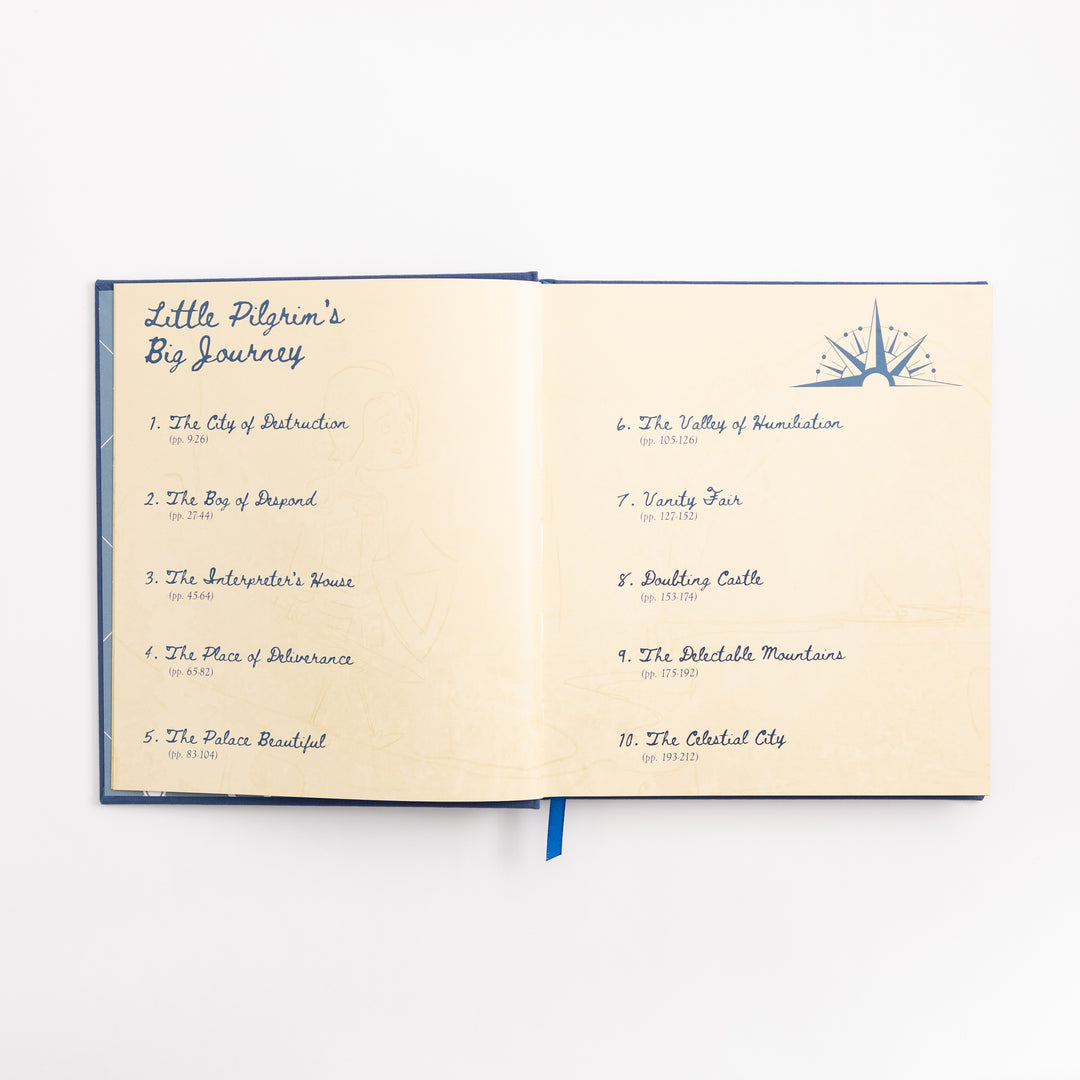 Little Pilgrim's
Big Journey
1. The City of Destruction
(pp. 9-26)
2. The Bog of Despond
(pp. 27-44)
3. The Interpreter's House
(pp. 45-64)
4. The Place of Deliverance
(pp. 65-82)
5. The Palace Beautiful
(pp. 83-104)
6. The Valley of Humiliation
(pp. 105-126)
7. Vanity Fair
(pp. 127-152)
8. Doubting Castle
(pp. 153-174)
9. The Delectable Mountains
(pp. 175-192)
10. The Celestial City
(pp. 193-212)